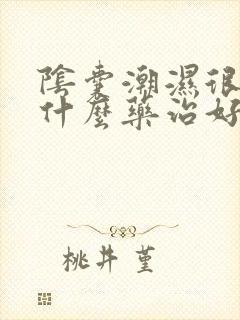 陰囊潮濕很
什麼藥治好
桃井 堇